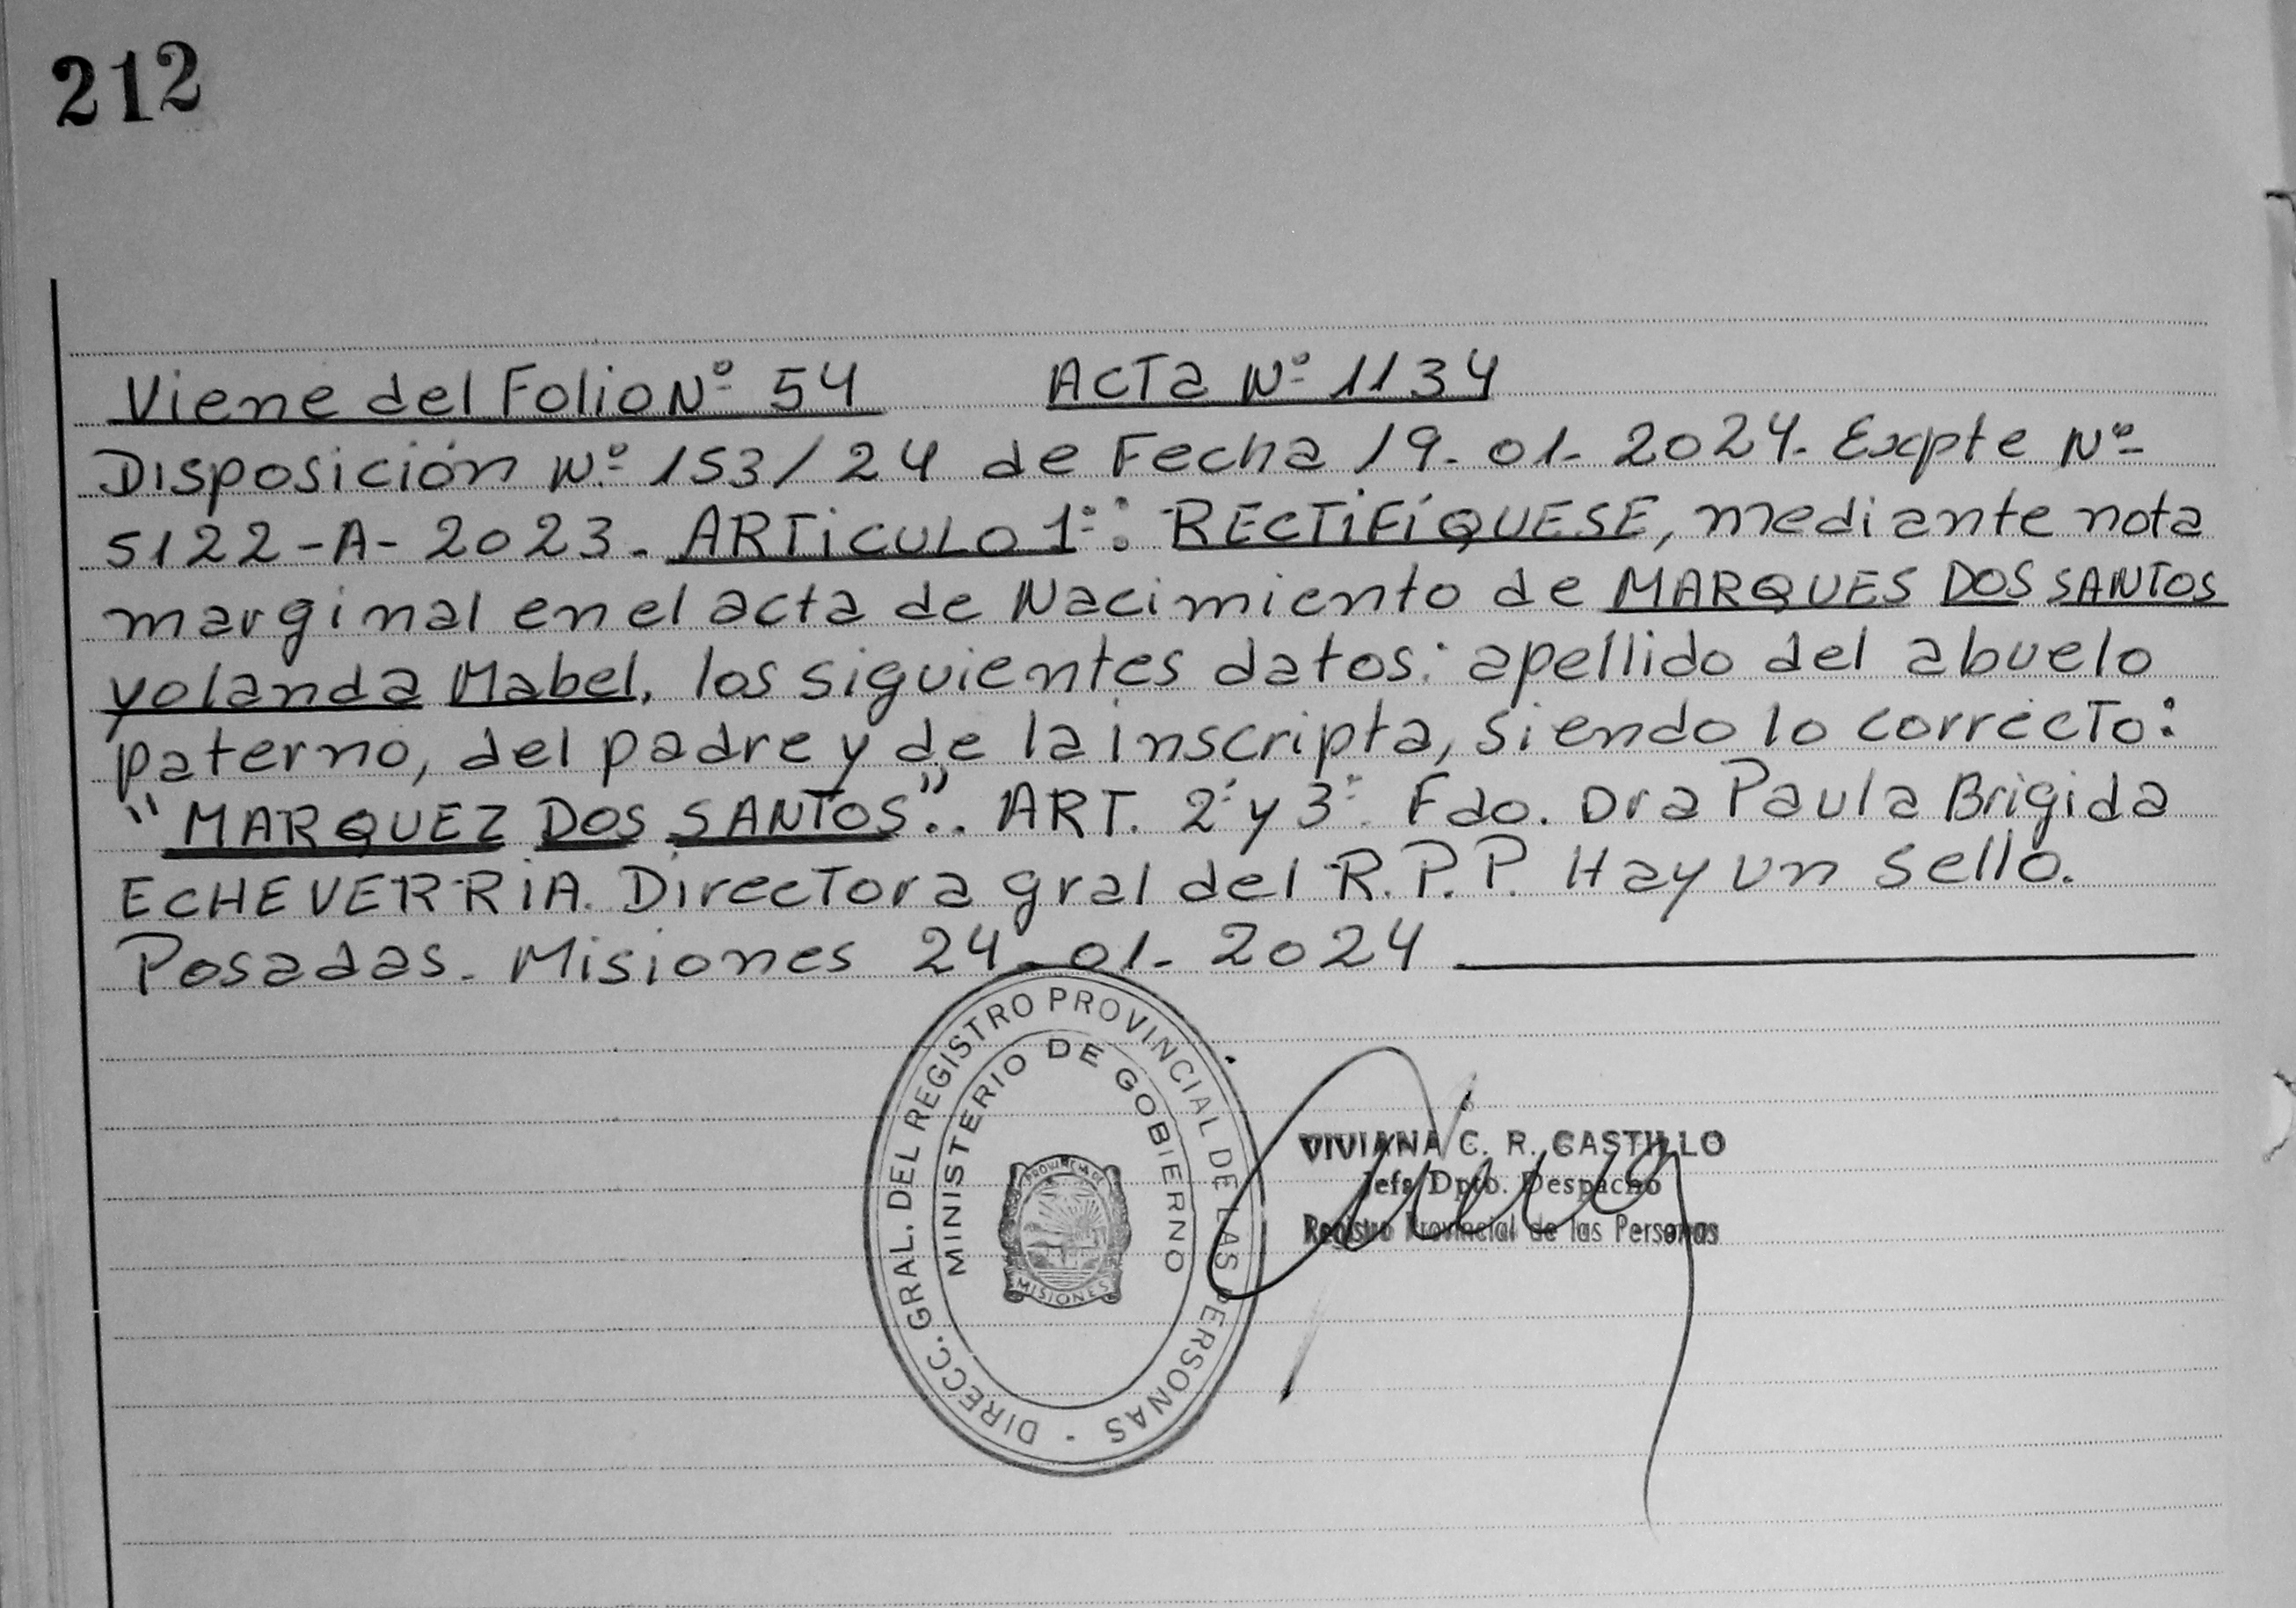 212
Viene del Folio Nº 54 Acta Nº 1134
Disposición Nº 153/24 de Fecha 19-01-2024. Expte Nº
5122-A-2023. ARTiCULO 1º: RECTiFíQUESE, mediante nota
marginal en el acta de Nacimiento de MARQUES DOS SANTOS
yolanda Mabel, los siguientes datos: apellido del abuelo
paterno, del padre y de la inscripta, siendo lo correcto:
"MARQUEZ DOS SANTOS". ART. 2º y 3º. Fdo. Dra Paula Brigida
ECHEVERRiA. Directora gral del R.P.P. Hay un sello.
Posadas. Misiones 24-01-2024
DIRECC. GRAL. DEL REGISTRO PROVINCIAL DE LAS PERSONAS
MINISTERIO DE GOBIERNO
PROVINCIA DE
MISIONES
VIVIANA C. R. CASTILLO
Jefa Dpto. Despacho
Registro Provincial de las Personas